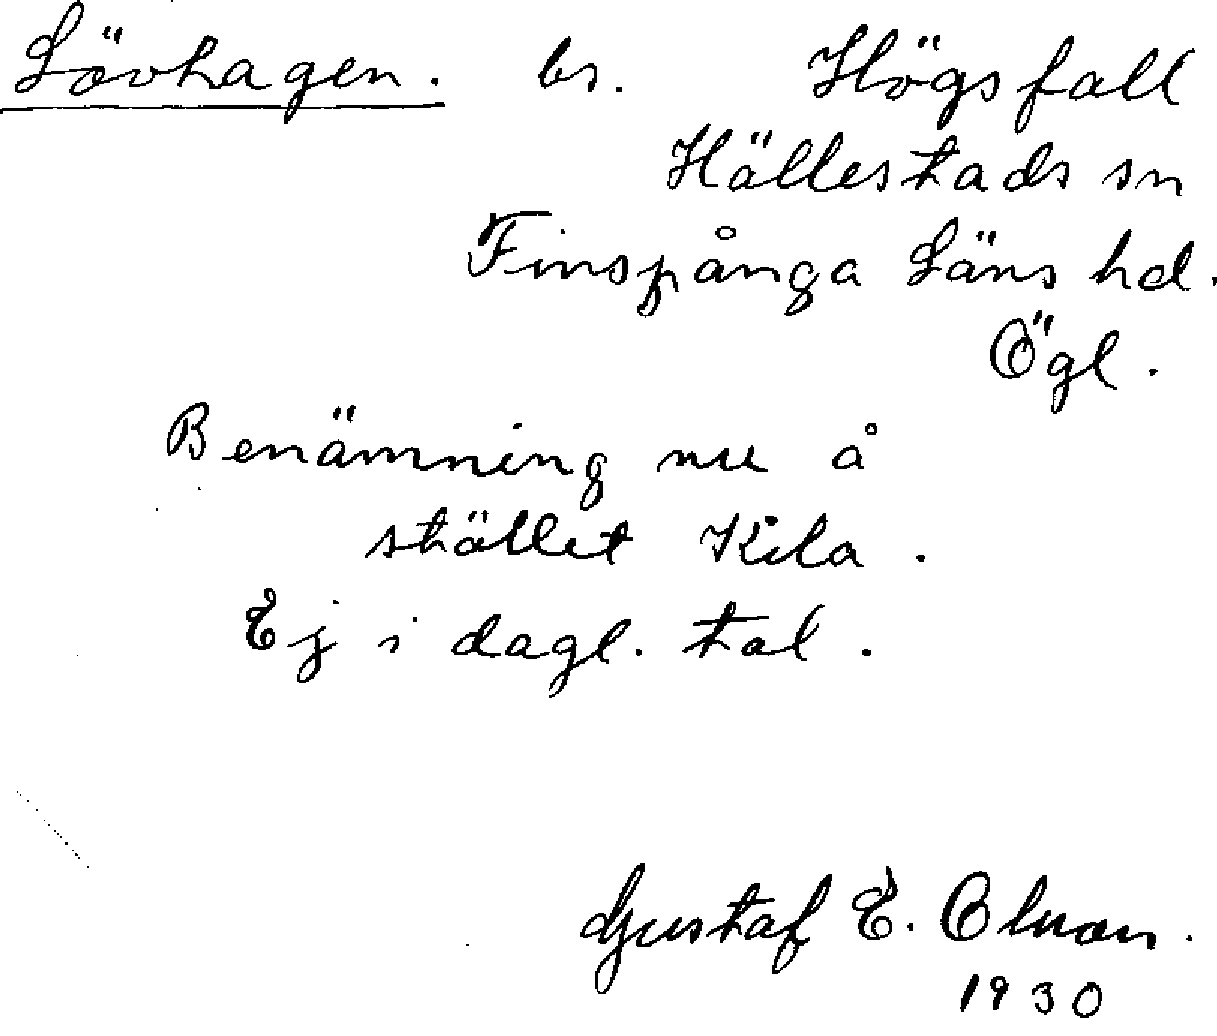 Lövhagen. bs. Högsfall
Hällestads sn
Finspånga Läns hd.
Ögl.
Benämning nu å
stället Kila.
Ej i dagl. tal.
Gustaf E. Olsson.
1930